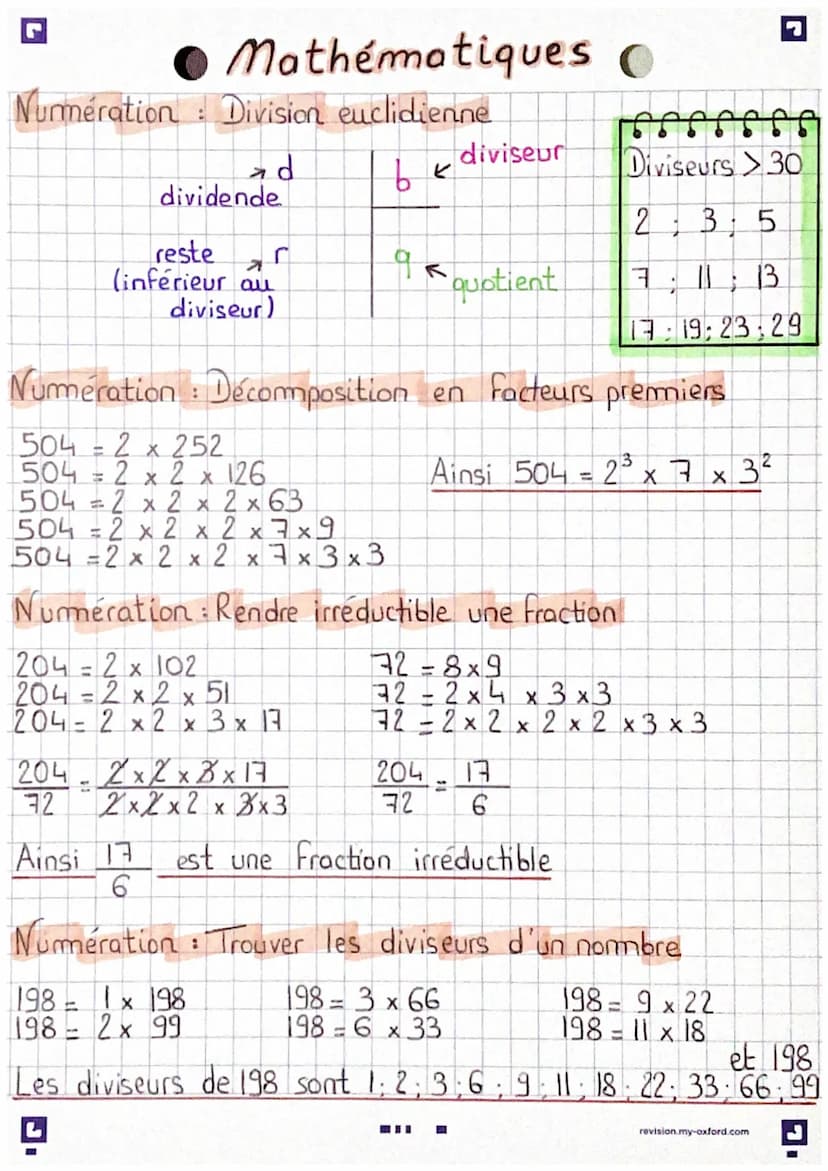 Mathématiques
Numération : Division euclidienne
d
dividende
b
diviseur
reste
(inférieur au
diviseur)
r
q
quotient
Diviseurs > 30
2 ; 3 ; 5
7 ; 11 ; 13
17 ; 19 ; 23 ; 29
Numération : Décomposition en facteurs premiers
504 = 2 x 252
504 = 2 x 2 x 126
504 = 2 x 2 x 2 x 63
504 = 2 x 2 x 2 x 7 x 9
504 = 2 x 2 x 2 x 7 x 3 x 3
Ainsi 504 = 2³ x 7 x 3²
Numération : Rendre irréductible une fraction
204 = 2 x 102
204 = 2 x 2 x 51
204 = 2 x 2 x 3 x 17
72 = 8 x 9
72 = 2 x 4 x 3 x 3
72 = 2 x 2 x 2 x 2 x 3 x 3
204/72 = 2 x 2 x 3 x 17 / 2 x 2 x 2 x 3 x 3
204/72 = 17/6
Ainsi 17/6 est une fraction irréductible
Numération : Trouver les diviseurs d'un nombre
198 = 1 x 198
198 = 2 x 99
198 = 3 x 66
198 = 6 x 33
198 = 9 x 22
198 = 11 x 18
Les diviseurs de 198 sont 1 ; 2 ; 3 ; 6 ; 9 ; 11 ; 18 ; 22 ; 33 ; 66 ; 99
et 198
revision.my-oxford.com